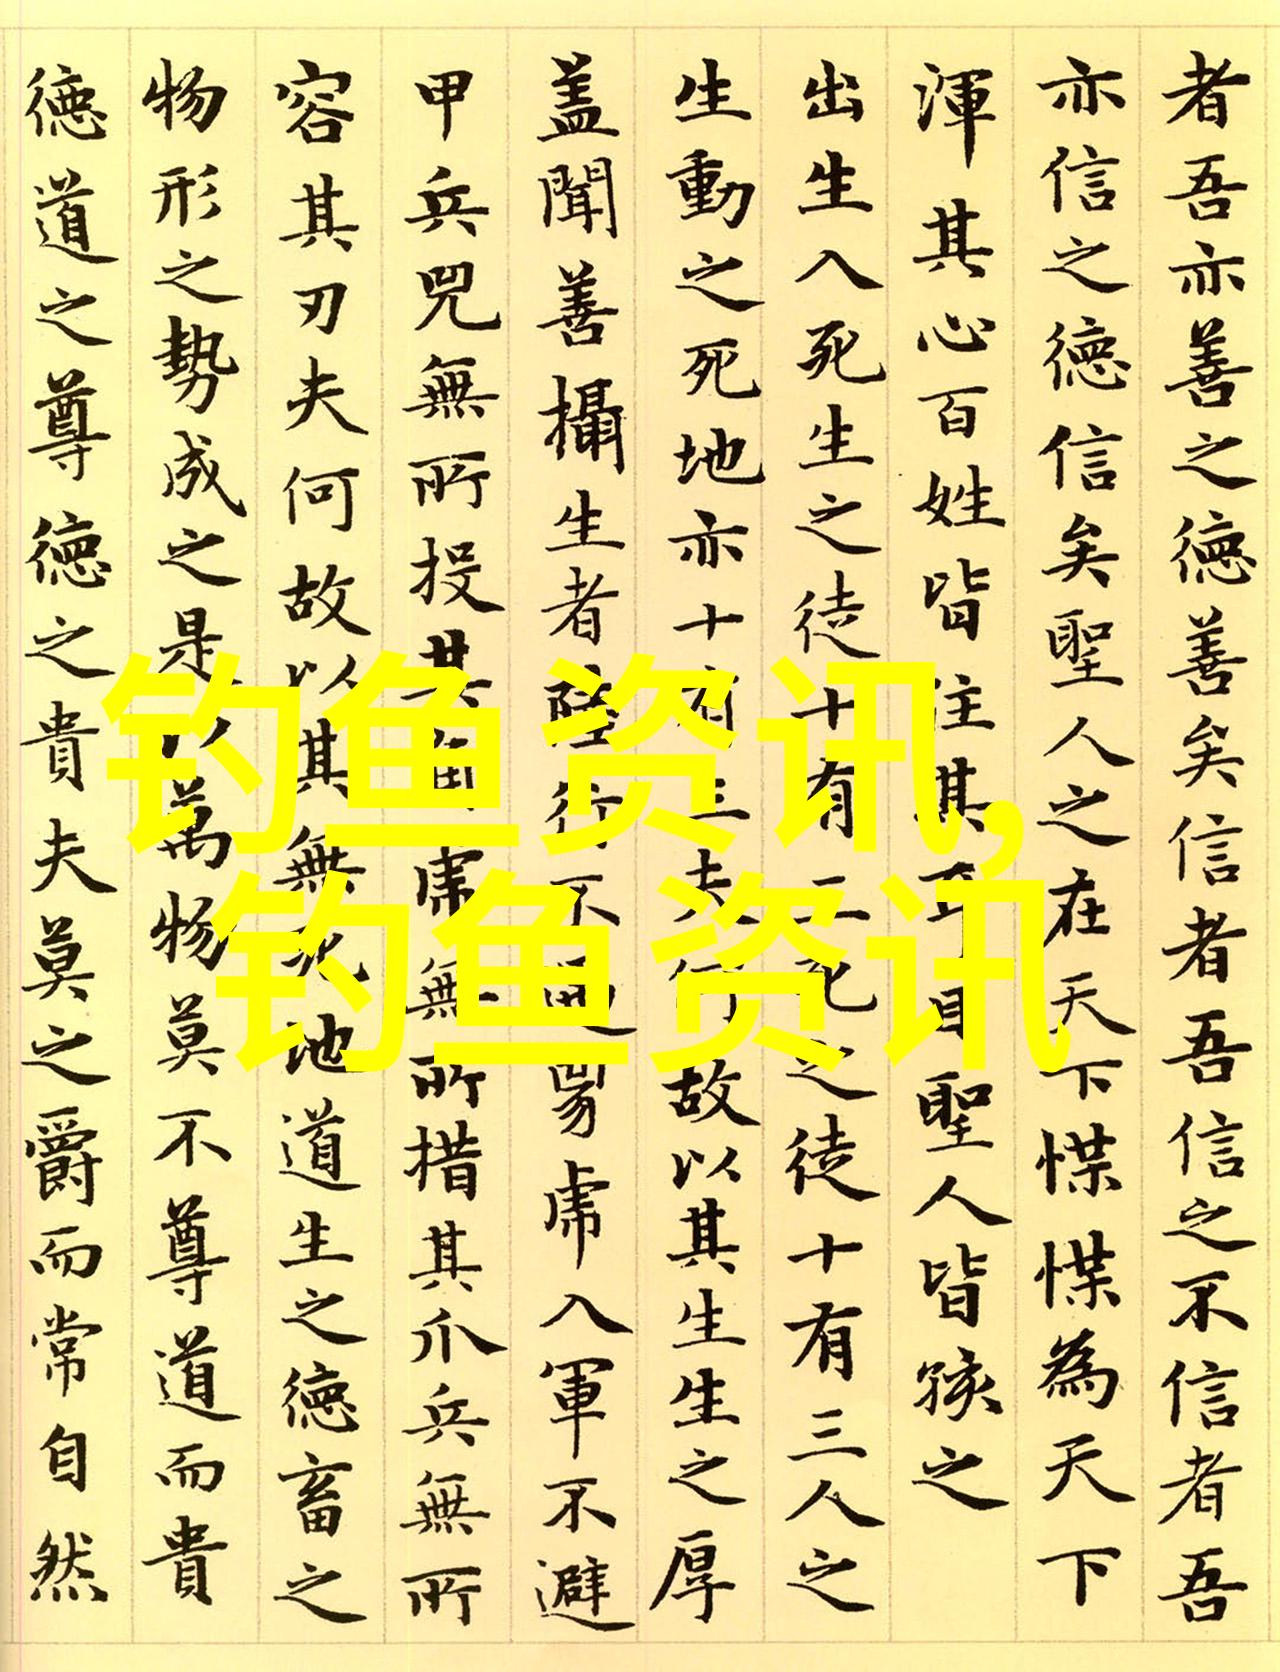 者吾亦善之德善矣信者吾信之不信者吾
亦信之德信矣聖人之在天下惵惵為天下
渾其心百姓皆注其耳目聖人皆孩之
出生入死生之徒十有三死之徒十有三人之
生動之死地亦十有三夫何故以其生生之厚
蓋聞善攝生者陸行不遇兕虎入軍不避
甲兵兕無所投其角虎無所措其爪兵無所
容其刃夫何故以其無死地道生之德畜之
物形之勢成之是以萬物莫不尊道而貴
德道之尊德之貴夫莫之爵而常自然
钓鱼资讯,
钓鱼资讯